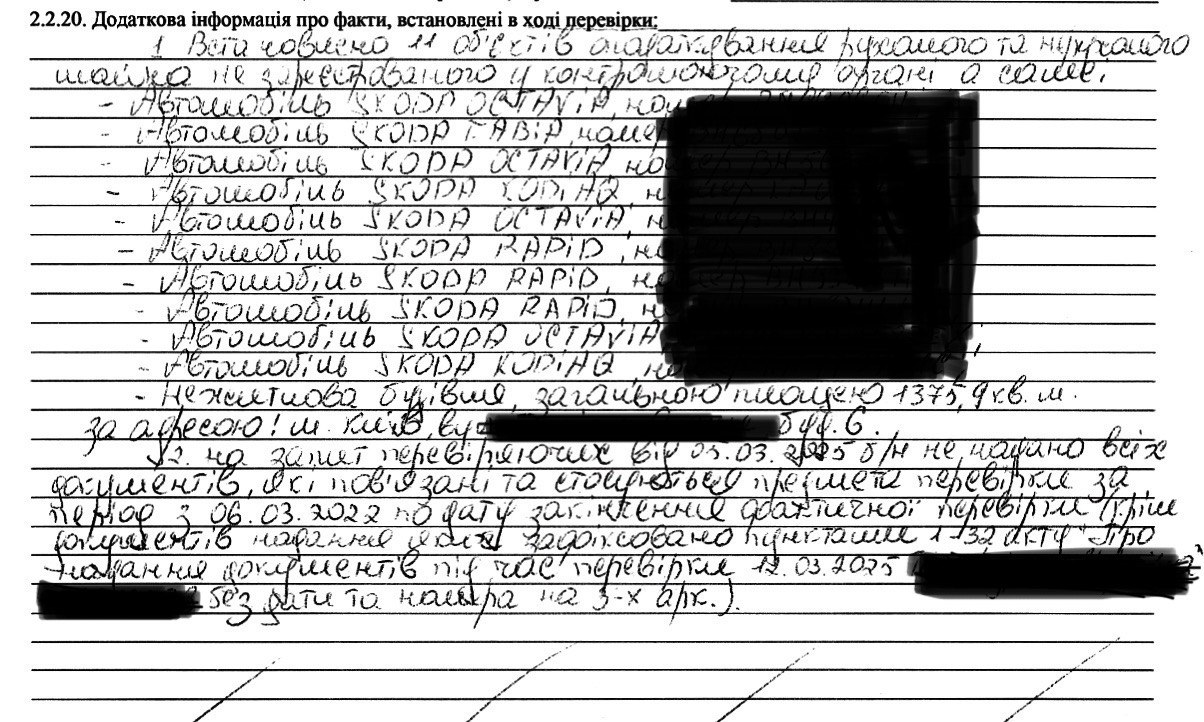 2.2.20. Додаткова інформація про факти, встановлені в ході перевірки:
1 Встановлено 11 об'єктів оподаткування рухомого та нерухомого
майна не зареєстрованого у контролюючому органі а саме:
- Автомобіль SKODA OCTAVIA, номер
- Автомобіль SKODA FABIA, номер
- Автомобіль SKODA OCTAVIA, но
- Автомобіль SKODA KODIAQ, н
- Автомобіль SKODA OCTAVIA, н
- Автомобіль SKODA RAPID, но
- Автомобіль SKODA RAPID, н
- Автомобіль SKODA RAPID, н
- Автомобіль SKODA OCTAVIA
- Автомобіль SKODA KODIAQ, но
- Нежитлова будівля, загальною площею 1375,9 кв. м.
за адресою: м. Київ, вул буд. 6.
2. на запит перевіряючих від 05.03.2025 б/н не надано всіх
документів, які пов'язані та стосуються предмета перевірки за
період з 06.03.2022 по дату закінчення фактичної перевірки (крім
документів надання яких зафіксовано пунктами 1-32 акту "Про
надання документів під час перевірки 12.03.2025
без дати та номера на 3-х арк.).